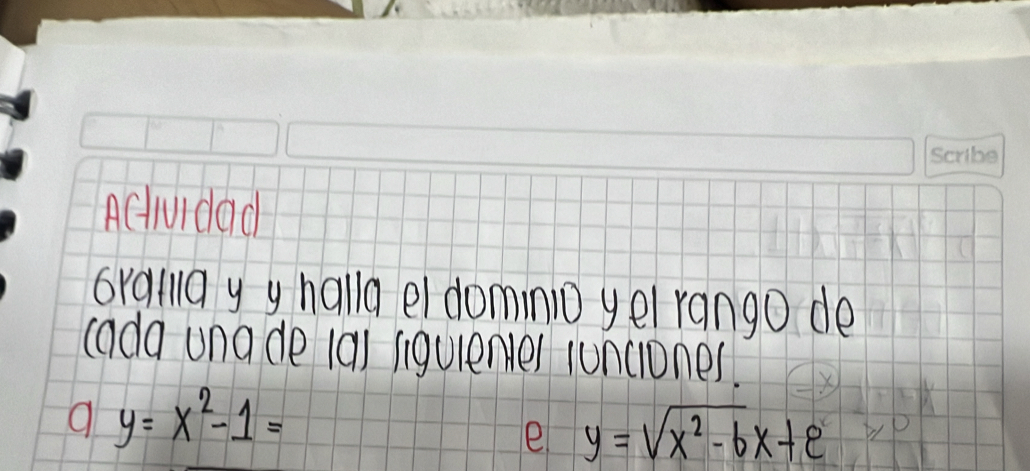 Scribe
Actividad
Grafica y y halla el dominio y el rango de
cada una de las siguientes funciones.
a y = x² - 1 =
e. y = √x² - 6x + 8 ≥ 0